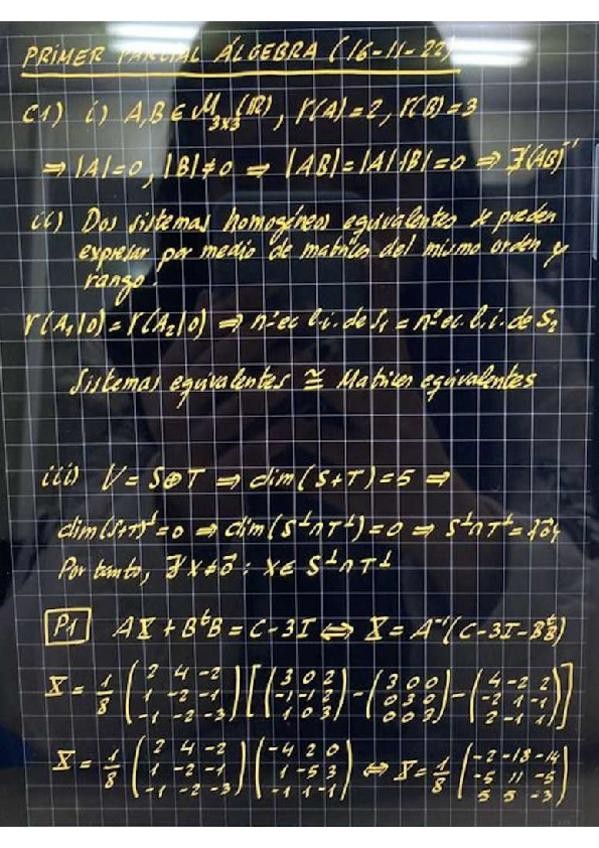 PRIMER PARCIAL ÁLGEBRA (16-11-22)
C1) i) A,B ∈ M₃ₓ₃(ℝ), r(A)=2, r(B)=3
⇒ |A|=0, |B|≠0 ⇒ |AB|=|A|·|B|=0 ⇒ ∄(AB)⁻¹
ii) Dos sistemas homogéneos equivalentes se pueden
expresar por medio de matrices del mismo orden y
rango.
r(A₁|0) = r(A₂|0) ⇒ nº ec l.i. de S₁ = nº ec. l.i. de S₂
Sistemas equivalentes ≅ Matrices equivalentes
iii) V = S⊕T ⇒ dim(S+T)=5 ⇒
dim(S+T)^⊥=0 ⇒ dim(S^⊥∩T^⊥)=0 ⇒ S^⊥∩T^⊥={0⃗}
Por tanto, ∄ x≠0⃗ : x∈ S^⊥∩T^⊥
P1 AX + BᵗB = C-3I ⇔ X = A⁻¹(C-3I-BᵗB)
X = 1/8 (2 4 -2; 1 -2 -1; -1 -2 -3) [(3 0 2; -1 -1 2; 1 0 3) - (3 0 0; 0 3 0; 0 0 3) - (4 -2 2; -2 1 -1; 2 -1 1)]
X = 1/8 (2 4 -2; 1 -2 -1; -1 -2 -3) (-4 2 0; 1 -5 3; -1 1 -1) ⇔ X = 1/8 (-2 -18 -14; -5 11 -5; 5 5 -3)